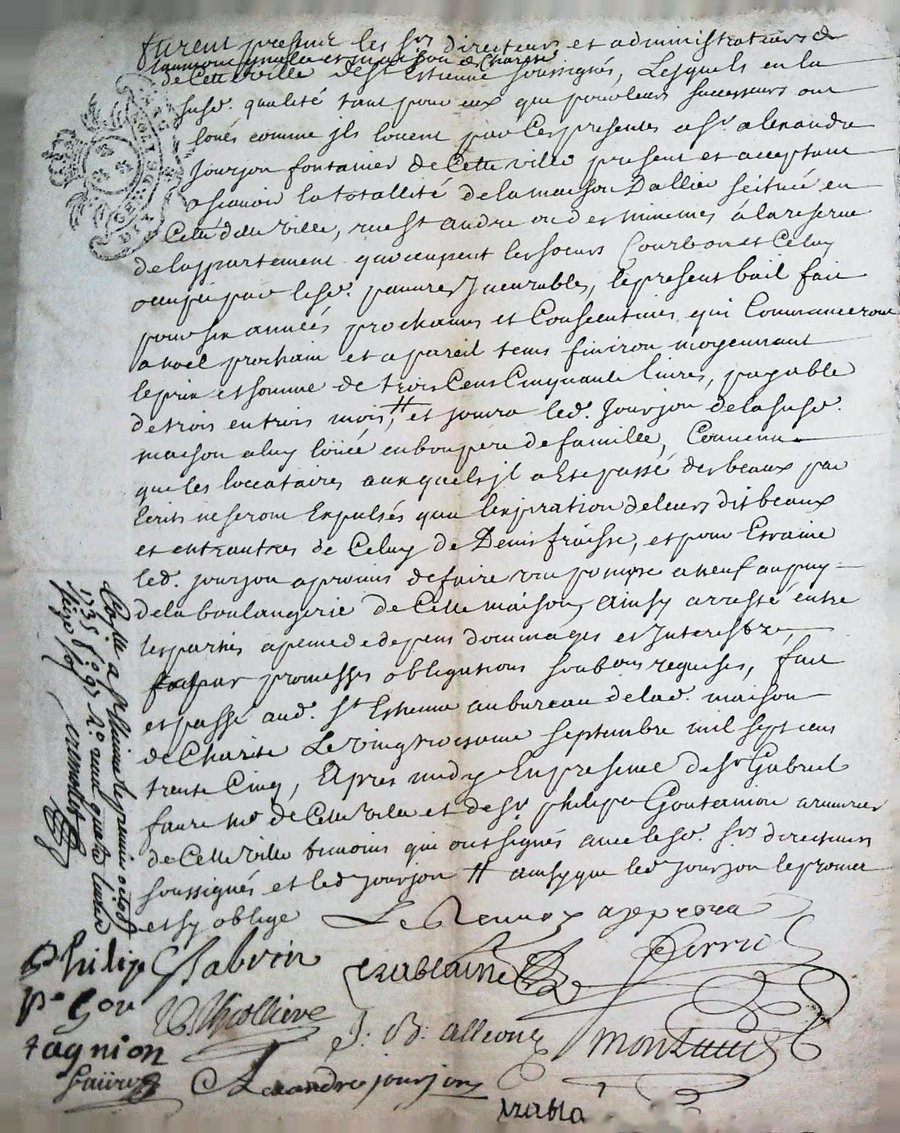 furent present les srs directeurs et administrateurs de
laumone gnalle et maison de Charité
de Cette ville de st Estienne soussignés, Lesquels en la
susd. qualité tant pour eux que pour leurs successeurs ont
loués comme jls louent par les presentes a sr. alexandre
Jourjon fontanier de Cette ville present et acceptant
a scavoir la totallité de la maison Dallier scituée en
Cette d. ville, rue st andré ou des minimes à la reserve
de lappartement quoccupent les soeurs Courbon et Celuy
occupé par lesd. pauvres Jncurables, le present bail fait
pour six années prochaines et Consecutives qui Commanceront
a noel prochain et a pareil tems finiron moyennant
le prix et somme de trois Cens Cinquante livres, payable
de trois en trois mois, # et jouira led. Jourjon de la susd.
maison a luy loüée en bon pere de famille, Convenu
que les loccataires auxquels jl a este passé des beaux par
Ecrits ne seront Expulsés qua lexpiration de leurs dit beaux
et entrautres de Celuy de Denis fraisse, et pour Estraine
led. jourjon a promis de faire une pompe a neuf au puy
de la boulangerie de Cette maison, Ainsy arresté entre
les parties a peine de depens dommages et Interest
par promesses obligations soubmis requises, fait
et passé aud. st Estienne au bureau de lad. maison
de Charité Le vingt troisieme septembre mil sept cens
trente Cinq, Apres midy En presence de sr Gabriel
faure md de Cette ville et de sr philipe Goutagnion armurier
de Cette ville temoins qui ont signés avec lesd. srs directeurs
soussignés et led. jourjon # ainsy que led. jourjon le promet
et sy oblige
Le Renvoy approuvé
Philip
pe Gou
tagnion
faure
J. B. alleon
Alexandre jourjon
Collé a st Estienne le premier octob
1735 fo 97